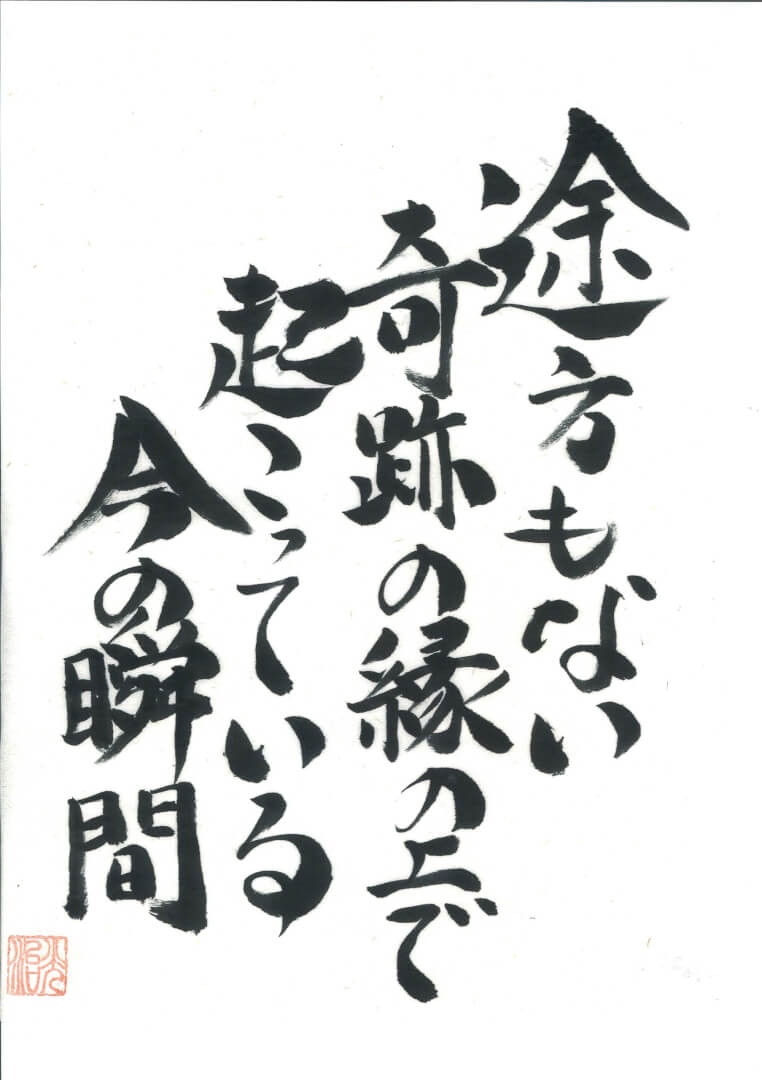 途方もない
奇跡の縁の上で
起こっている
今の瞬間